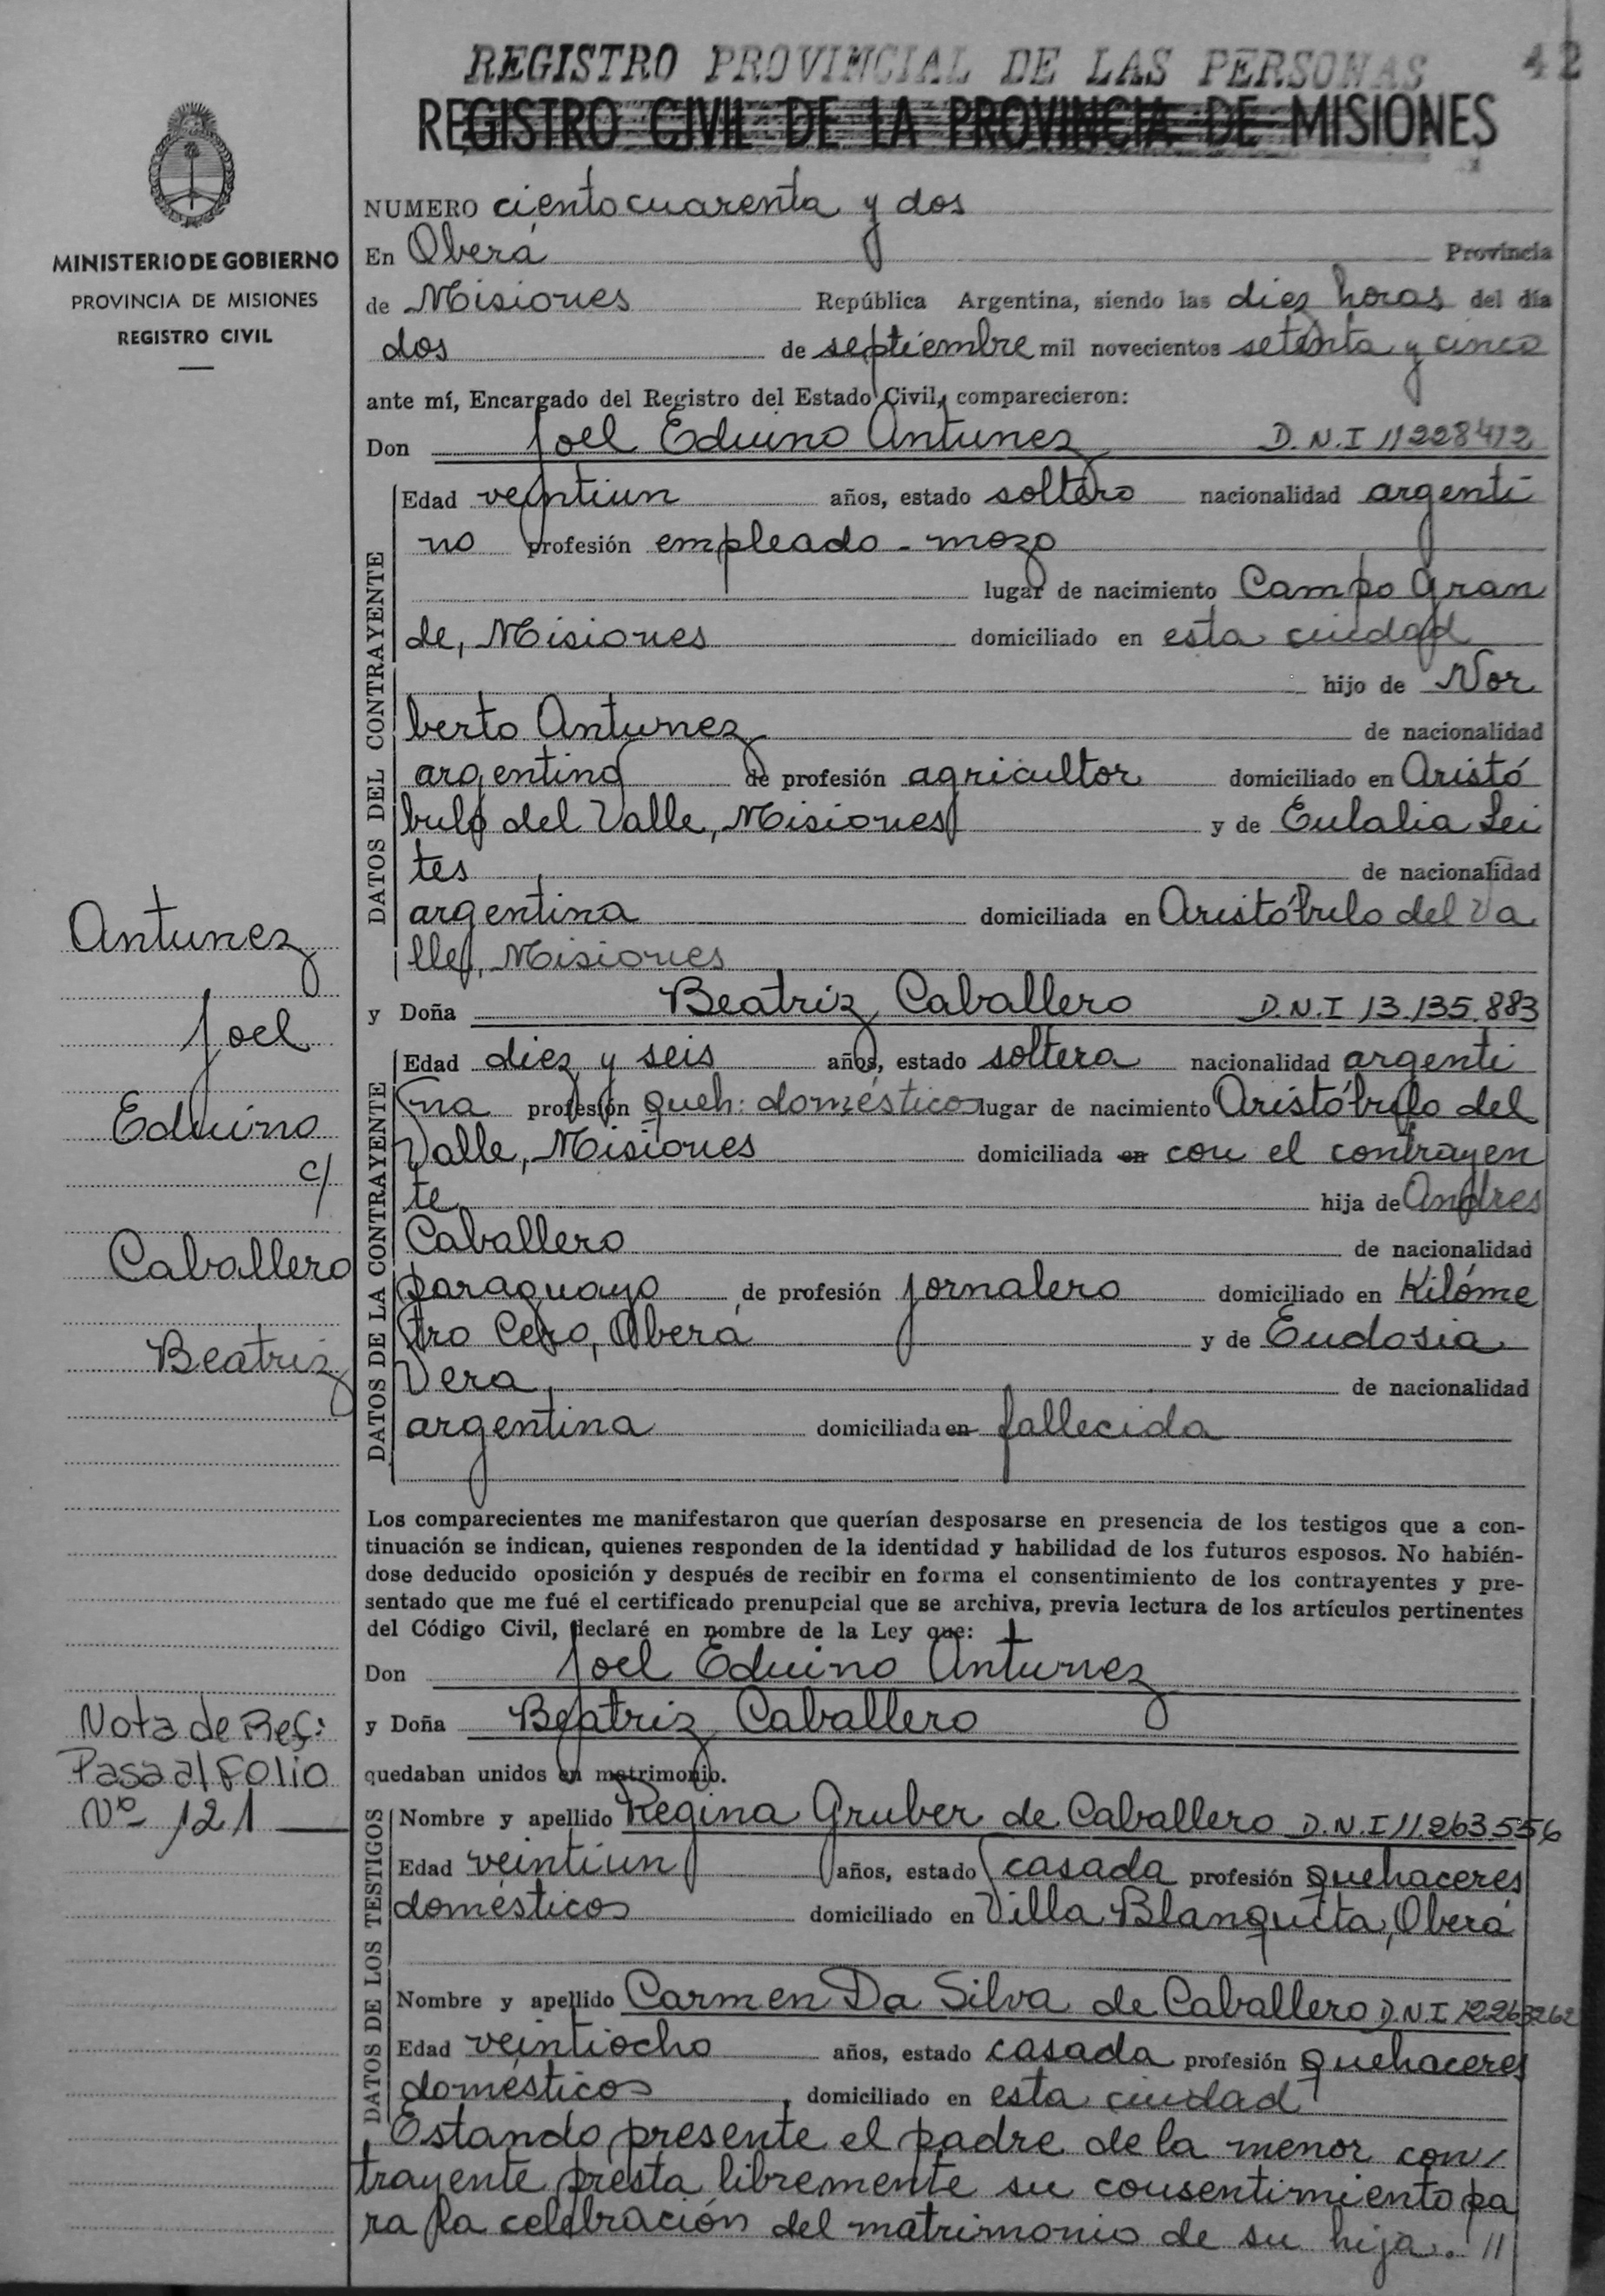 REGISTRO PROVINCIAL DE LAS PERSONAS 42
REGISTRO CIVIL DE LA PROVINCIA DE MISIONES
MINISTERIO DE GOBIERNO
PROVINCIA DE MISIONES
REGISTRO CIVIL
NUMERO ciento cuarenta y dos
En Oberá Provincia
de Misiones República Argentina, siendo las diez horas del día
dos de septiembre mil novecientos setenta y cinco
ante mí, Encargado del Registro del Estado Civil, comparecieron:
Don Joel Eduino Antunez D.N.I 11228412
DATOS DEL CONTRAYENTE
Edad veintiun años, estado soltero nacionalidad argenti
no profesión empleado - mozo
lugar de nacimiento Campo Gran
de, Misiones domiciliado en esta ciudad
hijo de Nor
berto Antunez de nacionalidad
argentino de profesión agricultor domiciliado en Aristó
bulo del Valle, Misiones y de Eulalia Lei
tes de nacionalidad
argentina domiciliada en Aristóbulo del Va
lle, Misiones
y Doña Beatriz Caballero D.N.I 13.135.883
DATOS DE LA CONTRAYENTE
Edad diez y seis años, estado soltera nacionalidad argenti
na profesión queh: domésticos lugar de nacimiento Aristóbulo del
Valle, Misiones domiciliada en con el contrayen
te hija de Andres
Caballero de nacionalidad
paraguayo de profesión jornalero domiciliado en Kilóme
tro Cero, Oberá y de Eudosia
Vera, de nacionalidad
argentina domiciliada en fallecida
Los comparecientes me manifestaron que querían desposarse en presencia de los testigos que a con-
tinuación se indican, quienes responden de la identidad y habilidad de los futuros esposos. No habién-
dose deducido oposición y después de recibir en forma el consentimiento de los contrayentes y pre-
sentado que me fué el certificado prenupcial que se archiva, previa lectura de los artículos pertinentes
del Código Civil, declaré en nombre de la Ley que:
Don Joel Eduino Antunez
y Doña Beatriz Caballero
quedaban unidos en matrimonio.
DATOS DE LOS TESTIGOS
Nombre y apellido Regina Gruber de Caballero D.N.I 11.263.556
Edad veintiun años, estado casada profesión quehaceres
domésticos domiciliado en Villa Blanquita, Oberá
Nombre y apellido Carmen Da Silva de Caballero D.N.I 12263262
Edad veintiocho años, estado casada profesión quehaceres
domésticos, domiciliado en esta ciudad
Estando presente el padre de la menor con/
trayente presta libremente su consentimiento pa
ra la celebración del matrimonio de su hija. //
Antunez
Joel
Eduino
c/
Caballero
Beatriz
Nota de Ref:
Pasa al Folio
Nº 121